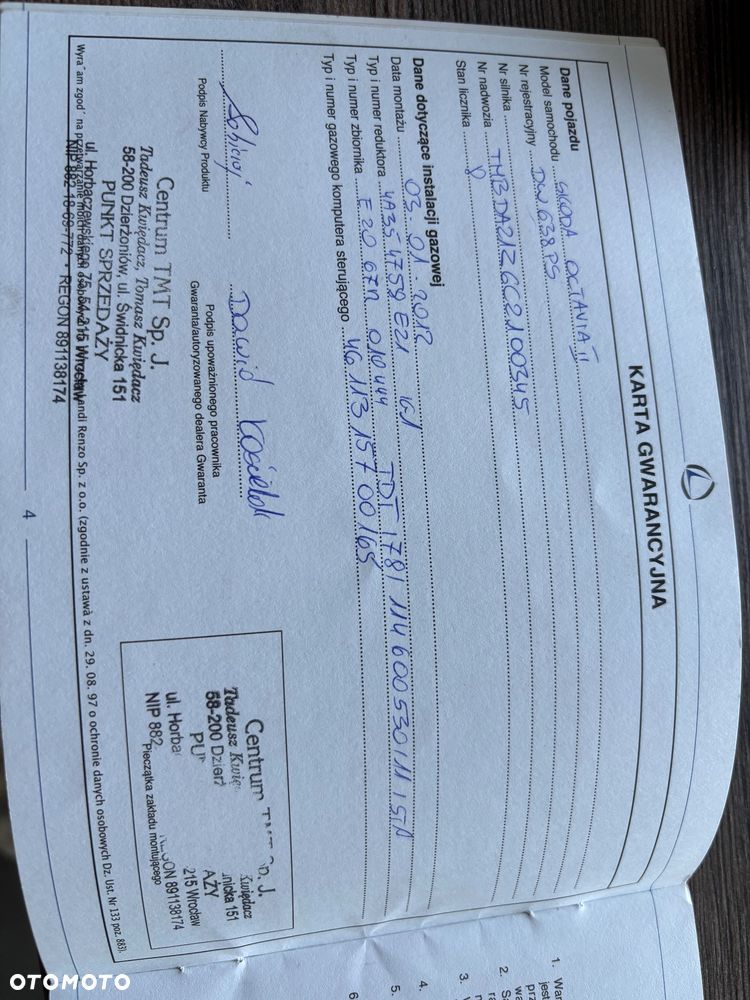 KARTA GWARANCYJNA
Dane pojazdu
Model samochodu SKODA OCTAVIA II
Nr rejestracyjny DW 638PS
Nr silnika
Nr nadwozia TMBDA21Z6C2100345
Stan licznika 8
Dane dotyczące instalacji gazowej
Data montażu 03.01.2012
Typ i numer reduktora 4A35 4759 E21
Typ i numer zbiornika E20 67R 010444 TDT 1781 114600530/11
Typ i numer gazowego komputera sterującego 4G 113 15700165
Dawid
Podpis Nabywcy Produktu
Podpis upoważnionego pracownika
Gwaranta/autoryzowanego dealera Gwaranta
Centrum TMT Sp. J.
Tadeusz Kwiędacz, Tomasz Kwiędacz
58-200 Dzierżoniów, ul. Świdnicka 151
PUNKT SPRZEDAŻY
ul. Horbaczewskiego 75, 54-215 Wrocław
NIP 882-18-69-772 * REGON 891138174
Centrum TMT Sp. J.
Tadeusz Kwię Kwiędacz
58-200 Dzierż nicka 151
PU AŻY
ul. Horba 215 Wrocław
NIP 882 GON 891138174
Pieczątka zakładu montującego
Wyra am zgod na przetwarzanie moich danych osobowych Landi Renzo Sp. z o.o. (zgodnie z ustawà z dn. 29. 08. 97 o ochronie danych osobowych Dz. Ust. Nr 133 poz. 883).
4
1.
2.
3.
4.
5.
6
OTOMOTO